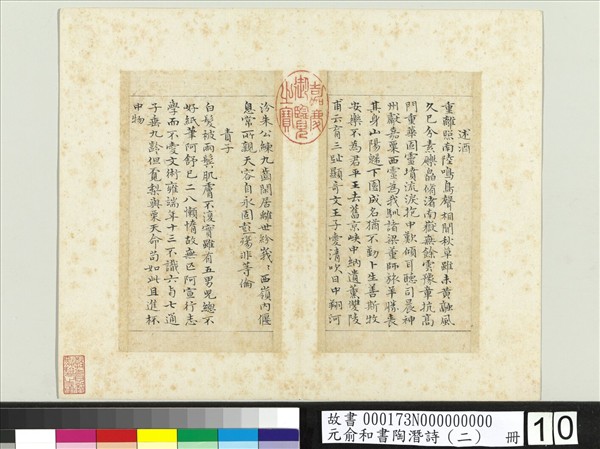 述酒
重離照南陸鳴鳥聲相聞秋草雖未黃融風
久已分素礫皛脩渚南嶽無餘雲豫章抗高
門重華固靈墳流淚抱中歎傾耳聽司晨神
州獻嘉粟西靈為我馴諸梁董師旅羊勝喪
其身山陽歸下國成名猶不勤卜生善斯牧
安樂不為君平王去舊京峽中納遺薰雙陵
甫云育三趾顯奇文王子愛清吹日中翔河
汾朱公練九齒閒居離世紛峩〻西嶺內偃
息常所親天容自永固彭殤非等倫
責子
白髮被兩鬢肌膚不復實雖有五男兒總不
好紙筆阿舒已二八懶惰故無匹阿宣行志
學而不愛文術雍端年十三不識六與七通
子垂九齡但覓梨與栗天命苟如此且進杯
中物
嘉慶御覽之寶
故書 000173N000000000
元俞和書陶潛詩(二) 冊
10